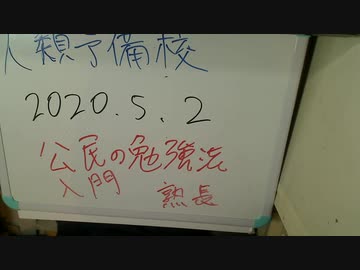 人類予備校
2020.5.2
公民の勉強法
入門 熟長